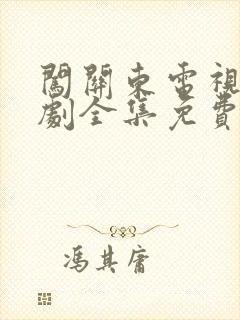 闖關東電視
劇全集免費
馮其庸